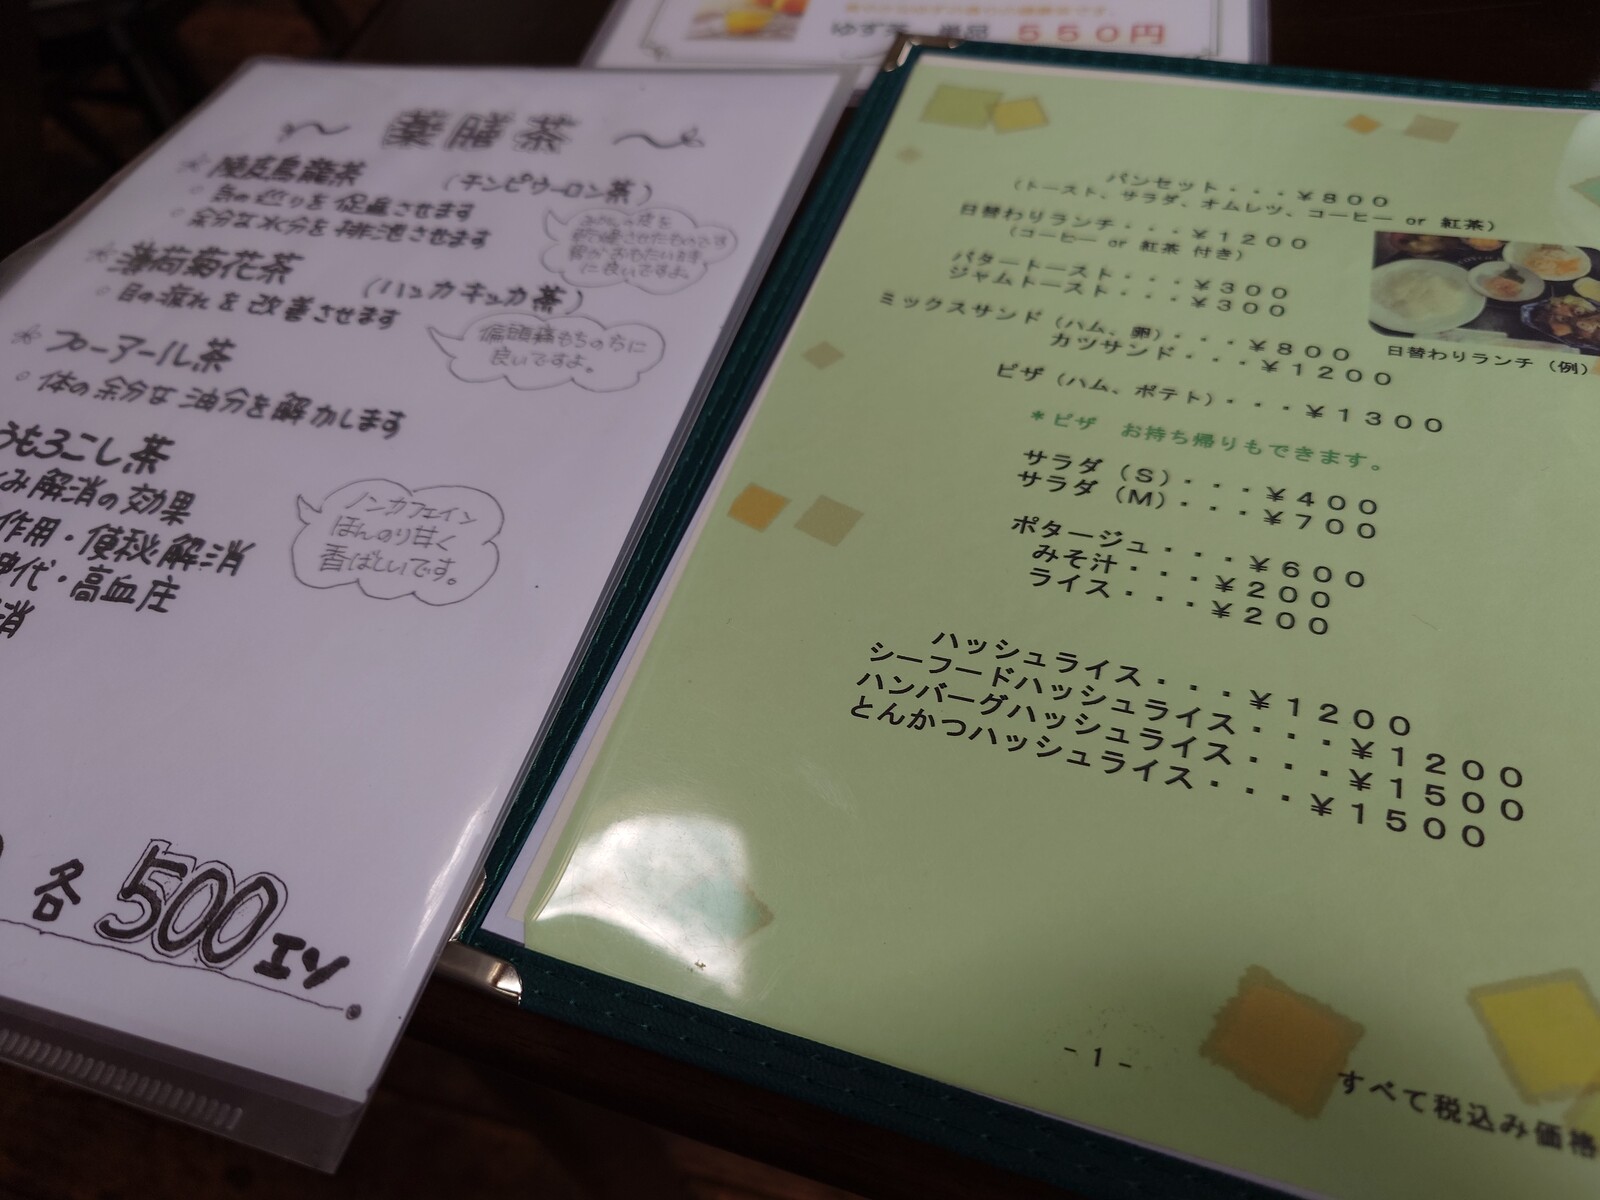 ゆず茶 単品 550円
薬膳茶
陳皮烏龍茶 (チンピウーロン茶)
気の巡りを促進させます
余分な水分を排泄させます
薄荷菊花茶 (ハッカキッカ茶)
目の疲れを改善させます
偏頭痛もちの方に
良いですよ。
プーアール茶
体の余分な油分を解かします
うもろこし茶
み解消の効果
作用・便秘解消
高血圧
消
ノンカフェイン
ほんのり甘く
香ばしいです。
各500エン
パンセット・・・¥800
(トースト、サラダ、オムレツ、コーヒー or 紅茶)
日替わりランチ・・・¥1200
(コーヒー or 紅茶 付き)
バタートースト・・・¥300
ジャムトースト・・・¥300
ミックスサンド(ハム、卵)・・・¥800
カツサンド・・・¥1200
日替わりランチ(例)
ピザ(ハム、ポテト)・・・¥1300
*ピザ お持ち帰りもできます。
サラダ(S)・・・¥400
サラダ(M)・・・¥700
ポタージュ・・・¥600
みそ汁・・・¥200
ライス・・・¥200
ハッシュライス・・・¥1200
シーフードハッシュライス・・・¥1200
ハンバーグハッシュライス・・・¥1500
とんかつハッシュライス・・・¥1500
-1-
すべて税込み価格